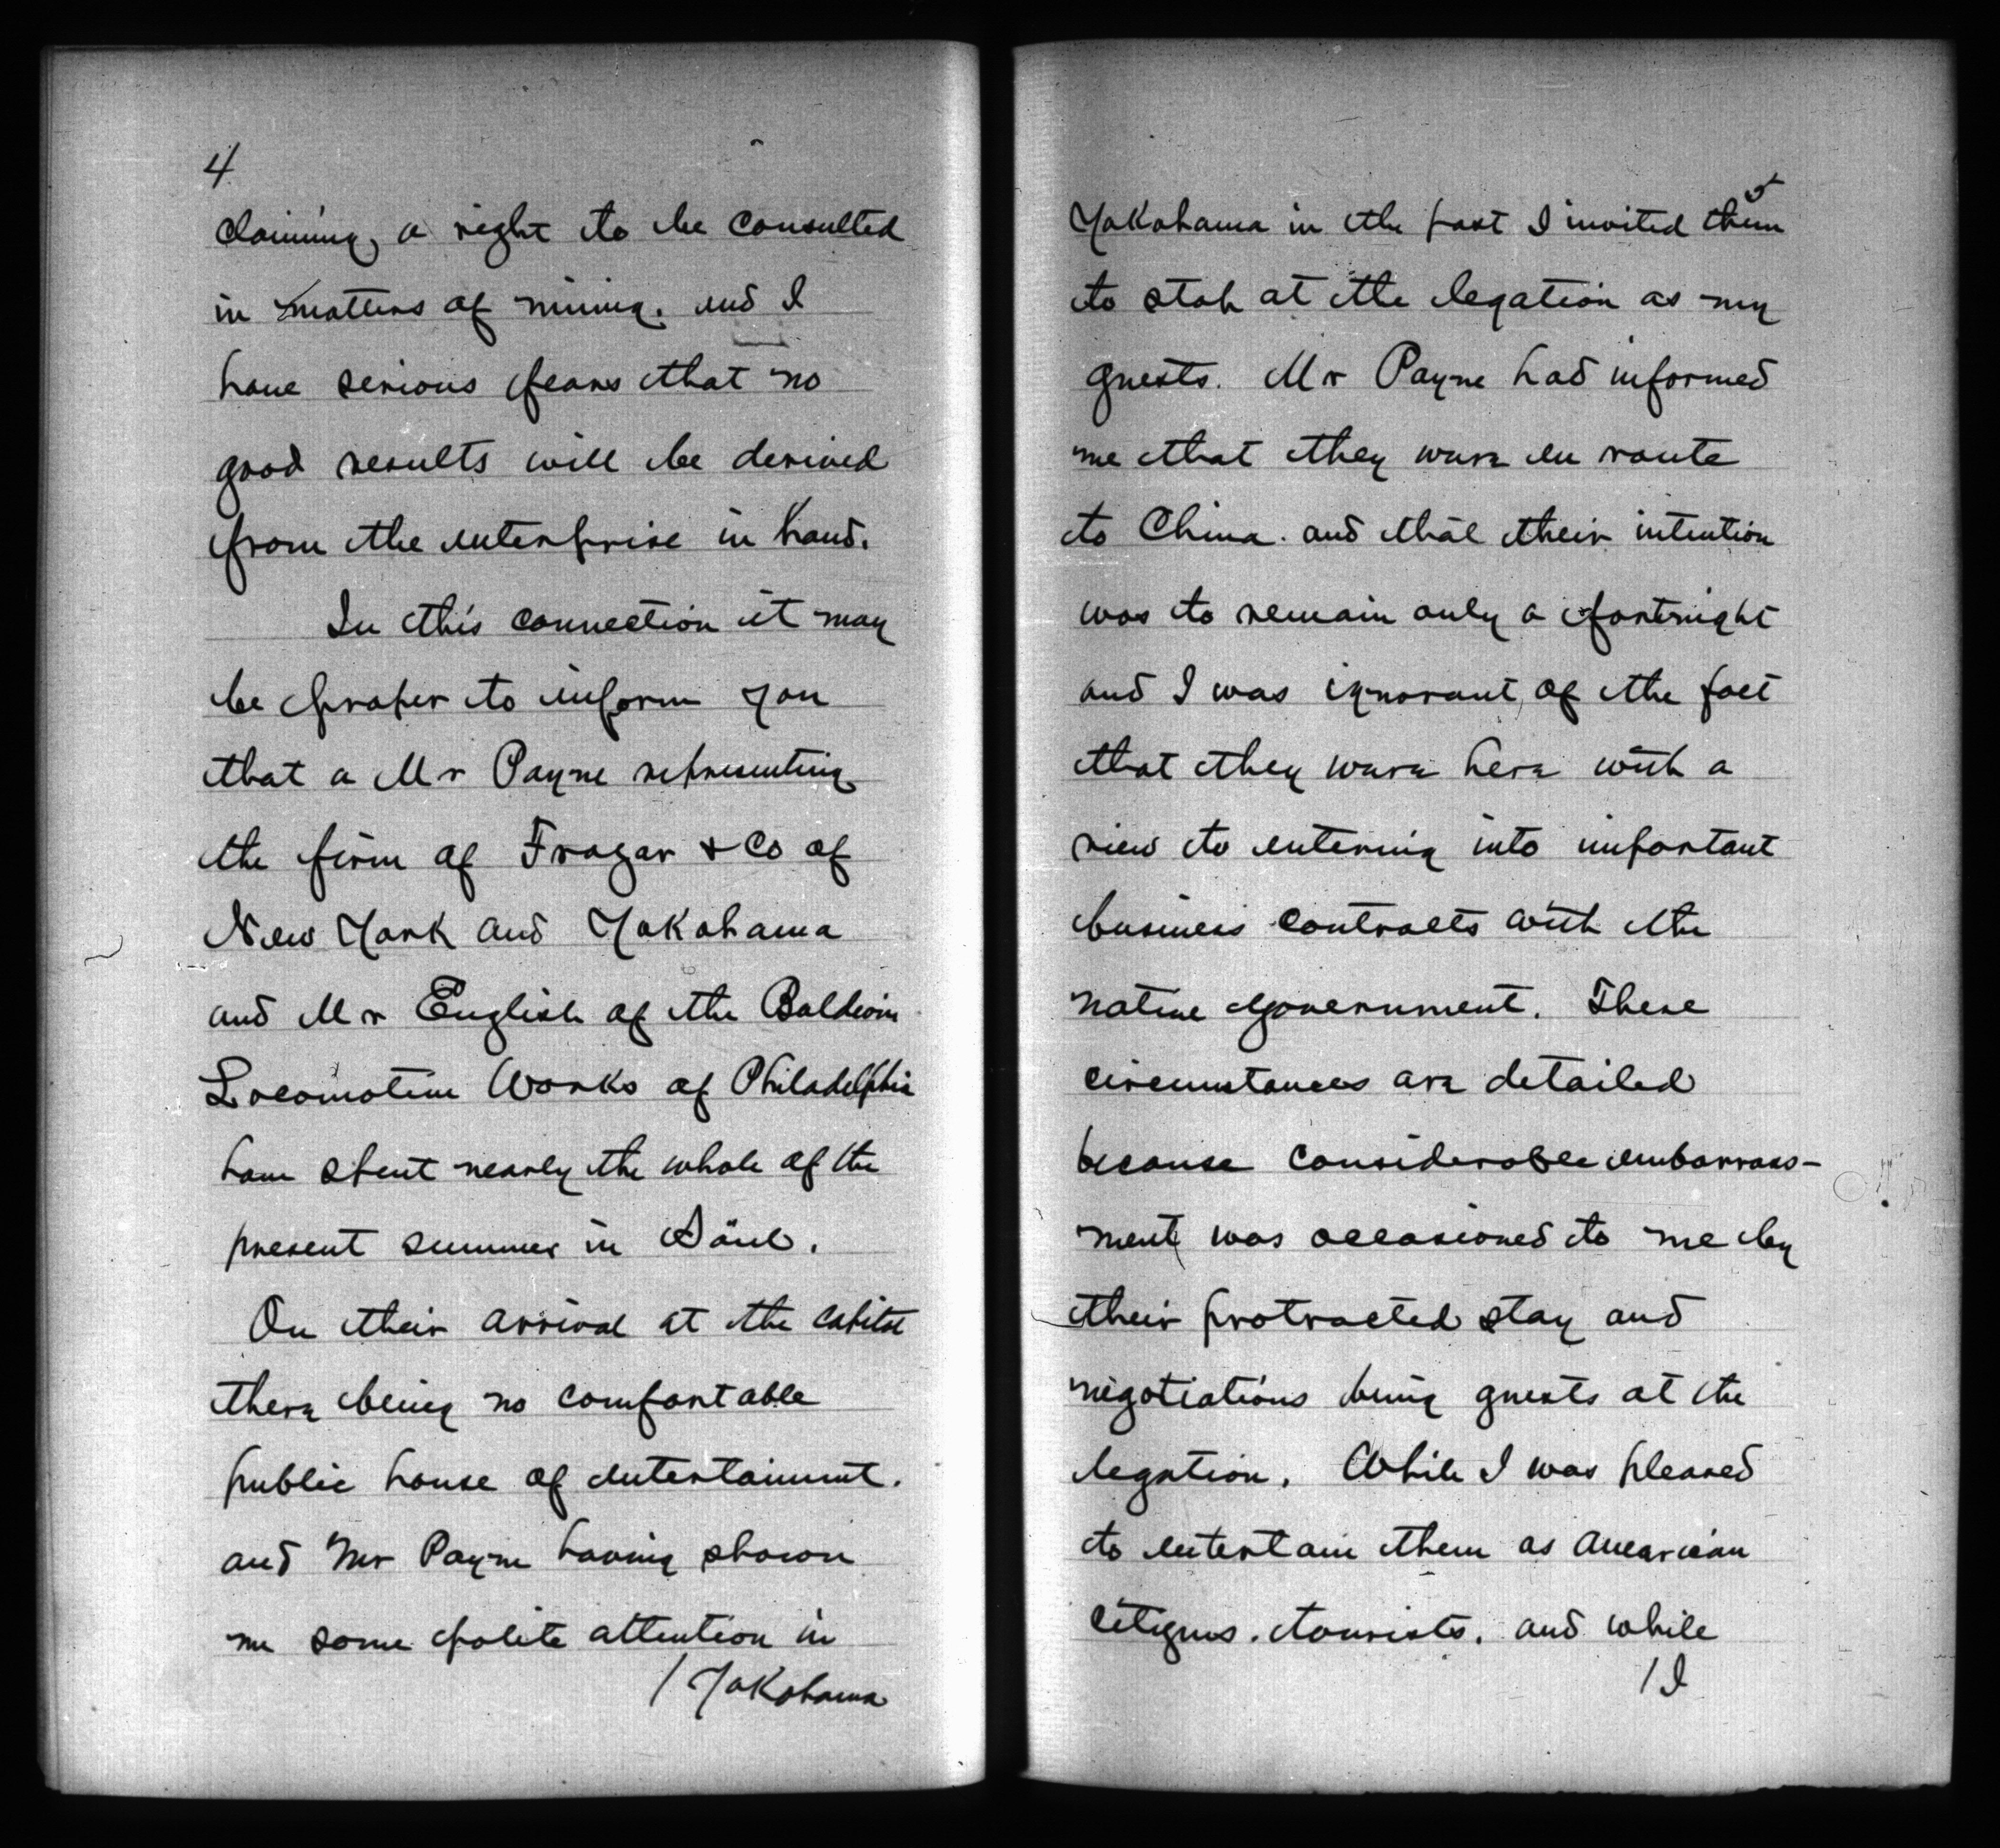 4
claiming, a right to be consulted
in matters of mining. and I
have serious fears that no
good results will be derived
from the enterprise in hand.
In this connection it may
be proper to inform you
that a Mr Payne representing
the firm of Frazar & Co of
New York and Yokohama
and Mr English of the Baldwin
Locomotive Works of Philadelphia
have spent nearly the whole of the
present summer in Söul.
On their arrival at the capital
there being no comfortable
public house of entertainment.
and Mr Payne having shown
me some polite attention in
/ Yokohama
5
Yokohama in the past I invited them
to stop at the legation as my
guests. Mr Payne had informed
me that they were en route
to China. and that their intention
was to remain only a fortnight
and I was ignorant, of the fact
that they were here with a
view to entering into important
business contracts with the
native government. These
circumstances are detailed
because considerable embarrass-
ment was occasioned to me by
their protracted stay and
negotiations being guests at the
legation. While I was pleased
to entertain them as American
citizens. tourists. and while
/ I